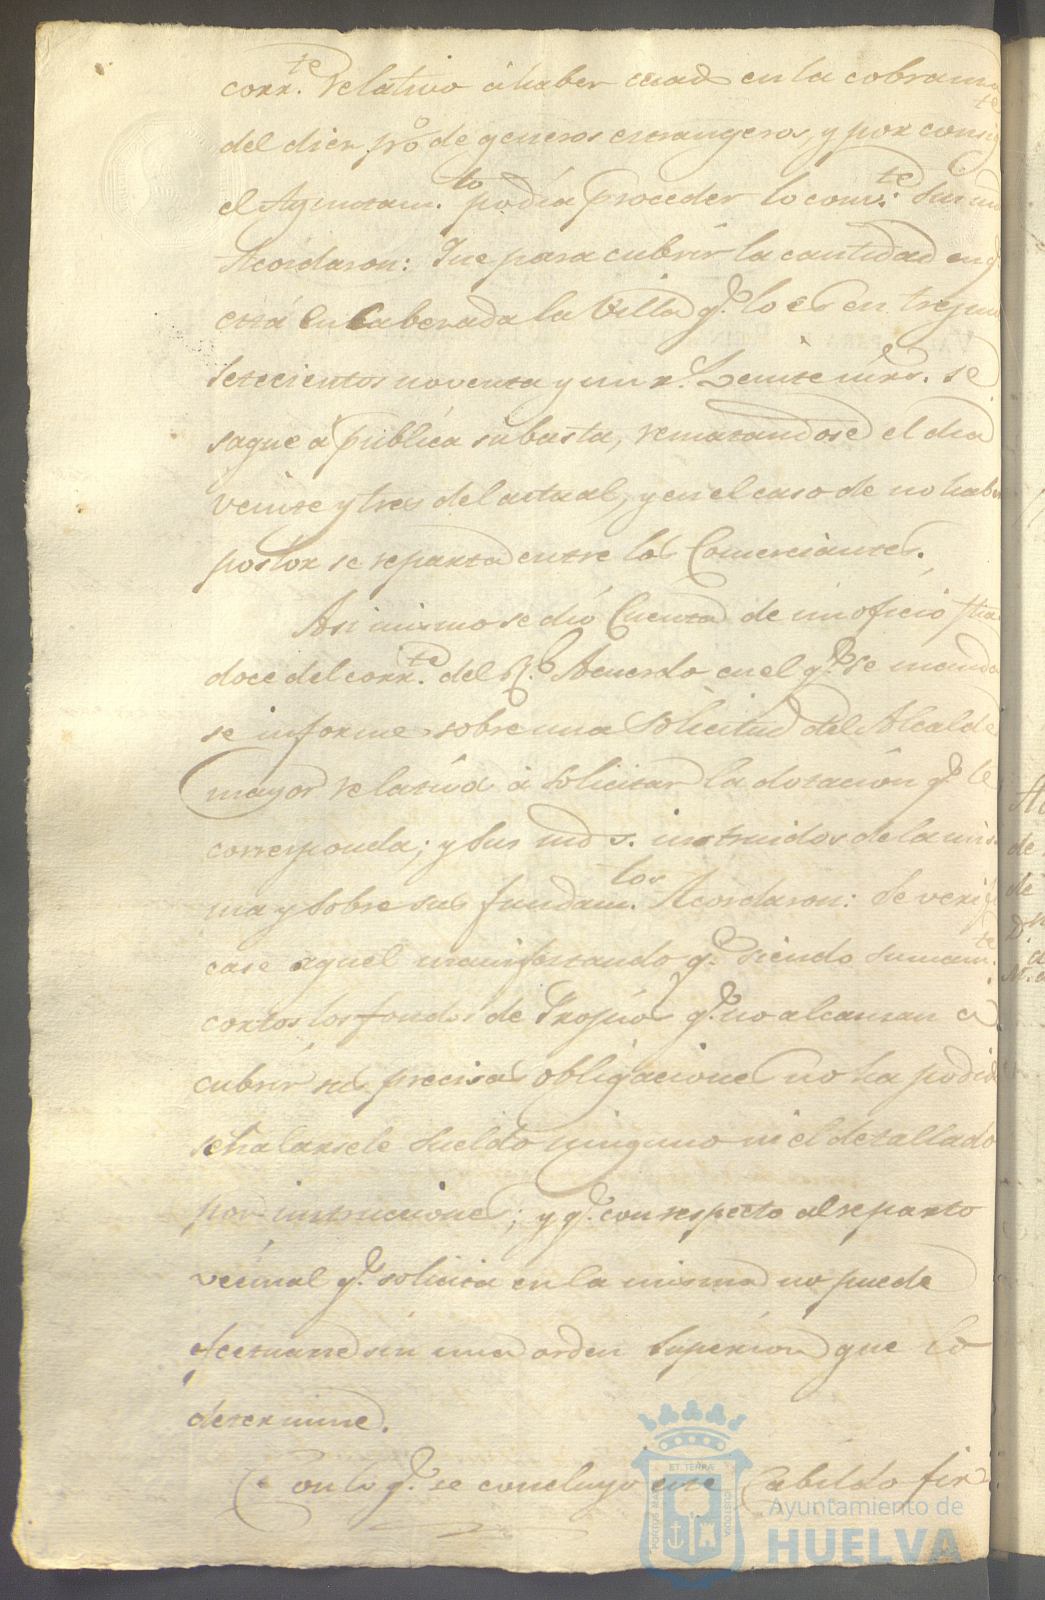 corr.te relativo á haber cesado en la cobranza
del diez p.ro de generos extrangeros, y por consig.te
el Ayuntam.to podía proceder lo conv.te Sus md.
Acordaron: Que para cubrir la cantidad en q.e
está encabezada la Villa q.e lo es en tres mil
setecientos noventa y un r.s veinte mrs. se
saque á pública subasta, rematandose el dia
veinte y tres del actual, y en el caso de no haber
postor se reparta entre los Comerciantes.
Asi mismo se dió Cuenta de un oficio fha
doce del corr.te del R.l Acuerdo en el q.e se manda
se informe sobre una solicitud del Alcalde
mayor relativa á solicitar la dotacion q.e le
corresponda; y Sus md s. instruidos de la mis
ma y sobre sus fundam.tos Acordaron: Se verifi
case aquel manifestando q.e siendo sumam.te
cortos los fondos de Propios q.e no alcanzan á
cubrir sus precisas obligaciones no ha podido
señalarsele sueldo ninguno ni el detallado
por instrucciones; y q.e con respecto al reparto
vecinal q.e solicita en la misma no puede
efectuarse sin una orden Superior que lo
determine.
Con lo q.e se concluyó este Cabildo fir
Ayuntamiento de
HUELVA